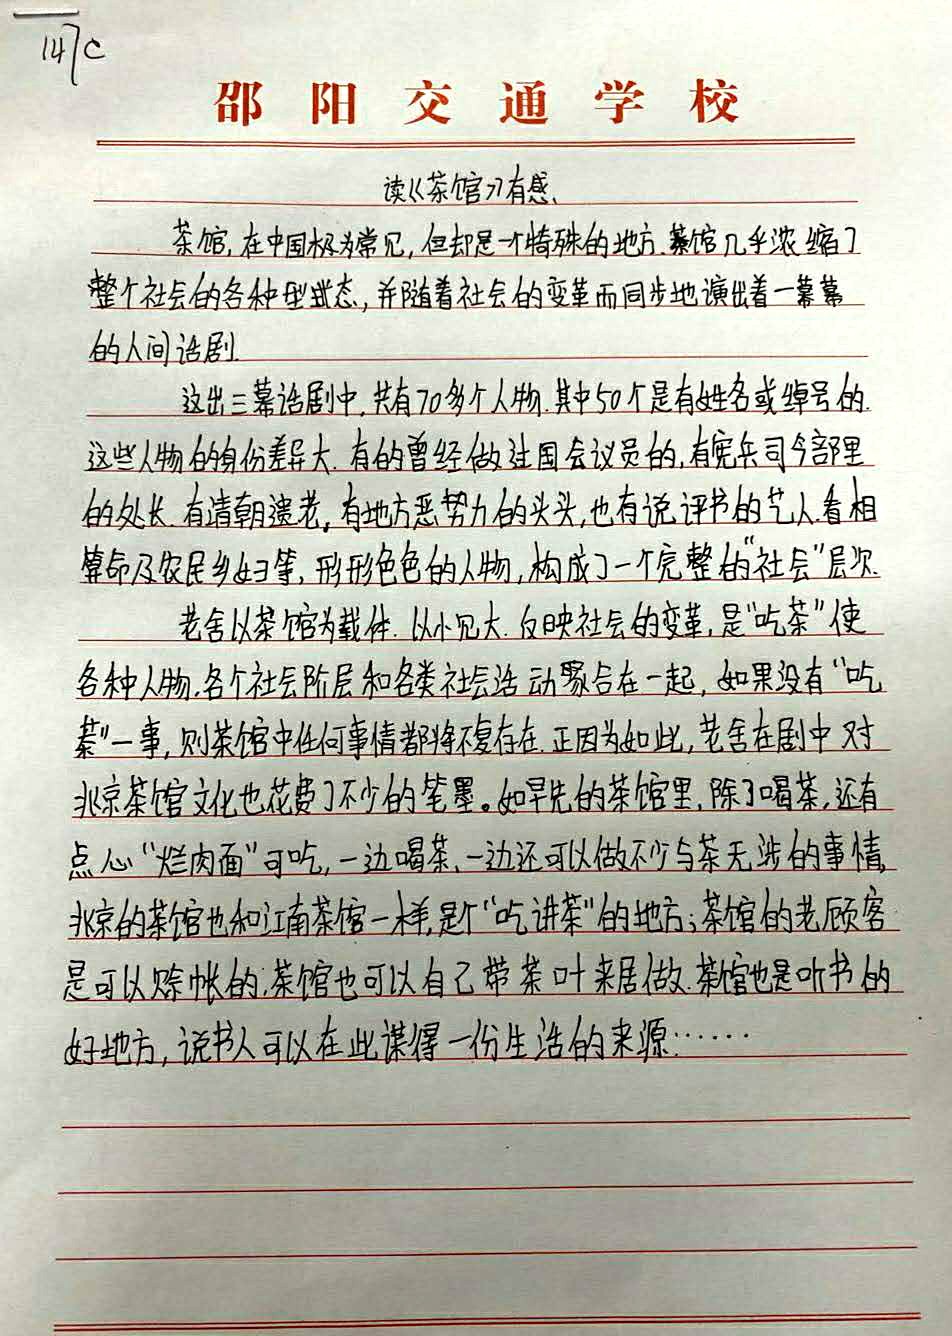 147C
邵阳交通学校
读《茶馆》有感.
茶馆,在中国极为常见,但却是一个特殊的地方.茶馆几乎浓缩了
整个社会的各种型式态,并随着社会的变革而同步地演出着一幕幕
的人间话剧.
这出三幕话剧中,共有70多个人物.其中50个是有姓名或绰号的.
这些人物的身份差异大.有的曾经做过国会议员的,有宪兵司令部里
的处长.有清朝遗老,有地方恶势力的头头,也有说评书的艺人.看相
算命及农民乡妇等,形形色色的人物,构成了一个完整的"社会"层次.
老舍以茶馆为载体.以小见大.反映社会的变革,是"吃茶"使
各种人物.各个社会阶层和各类社会活动聚合在一起,如果没有"吃
茶"一事,则茶馆中任何事情都将不复存在.正因为如此,老舍在剧中对
北京茶馆文化也花费了不少的笔墨。如早先的茶馆里,除了喝茶,还有
点心"烂肉面"可吃,一边喝茶、一边还可以做不少与茶无涉的事情,
北京的茶馆也和江南茶馆一样,是个"吃讲茶"的地方;茶馆的老顾客
是可以赊帐的;茶馆也可以自己带茶叶来居做.茶馆也是听书的
好地方,说书人可以在此谋得一份生活的来源……